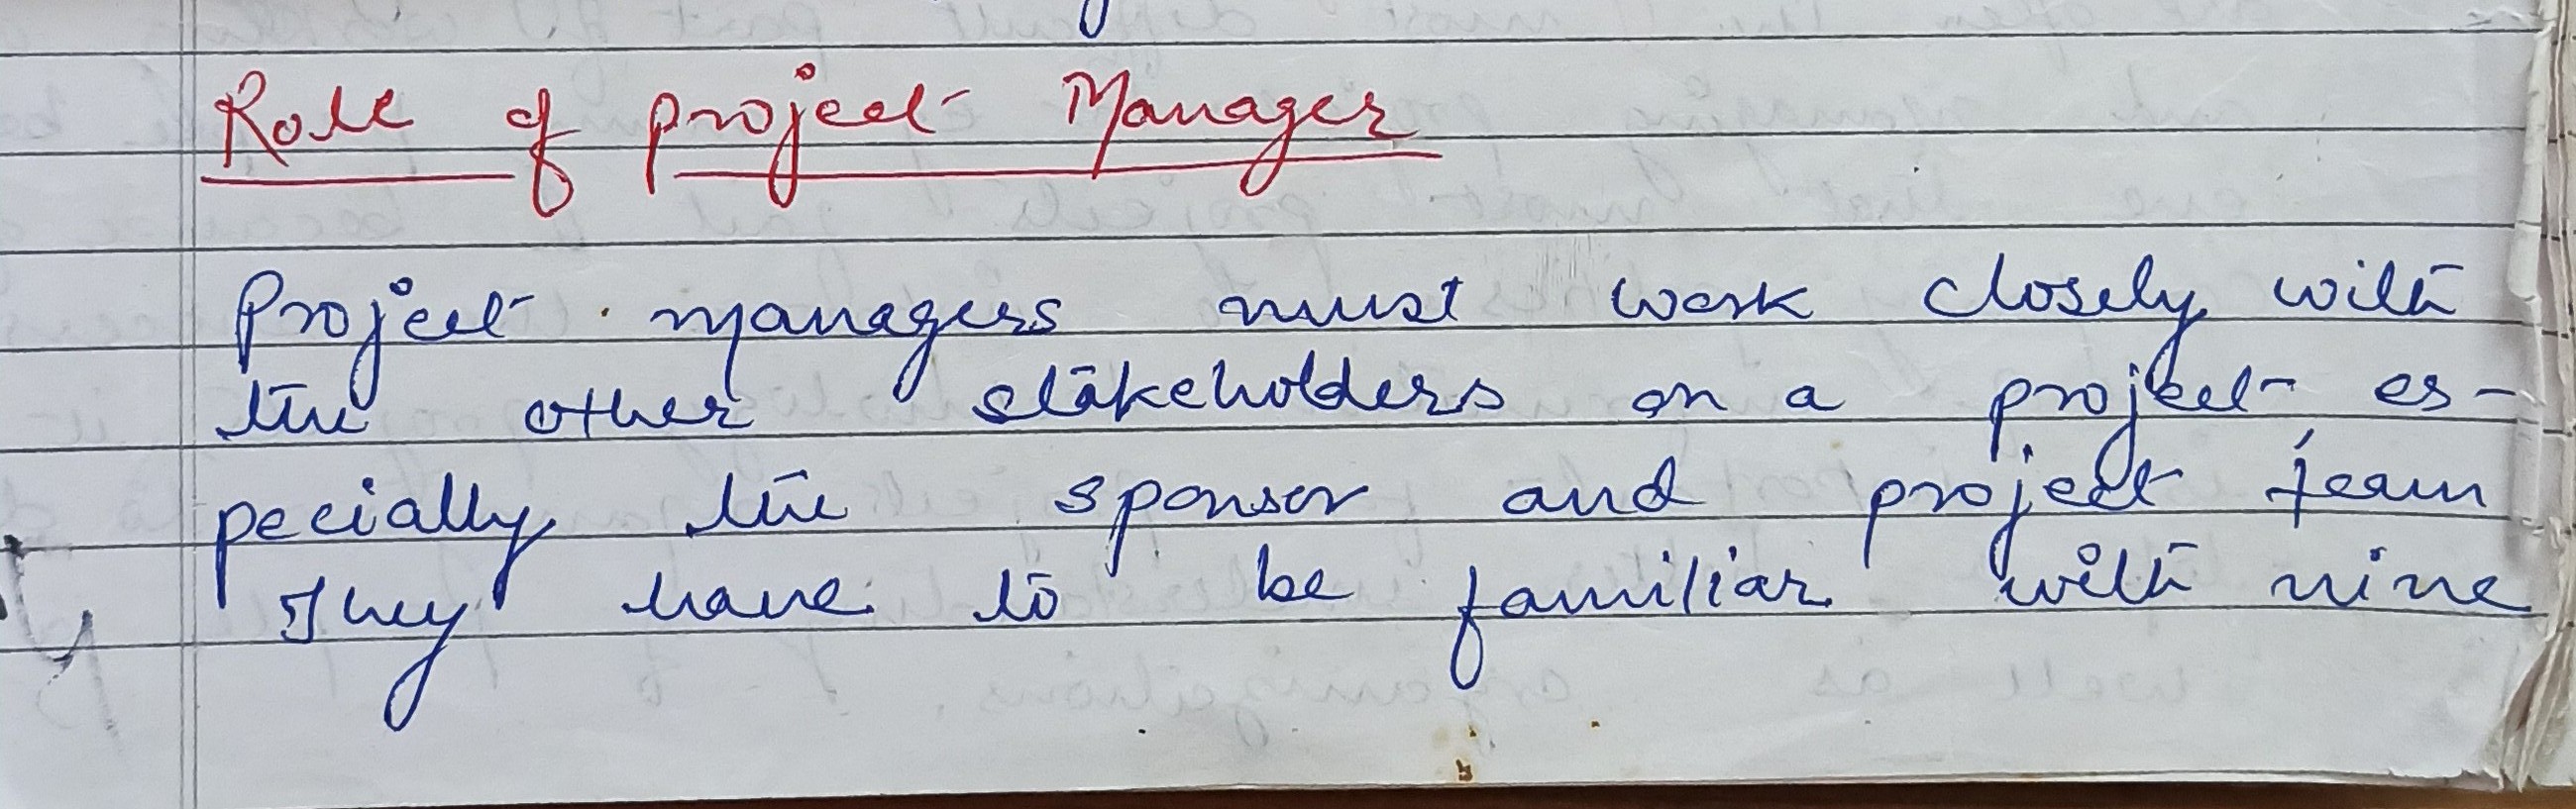 Role of project Manager
Project managers must work closely with
the other stakeholders on a project es-
pecially the sponsor and project team
They have to be familiar with nine